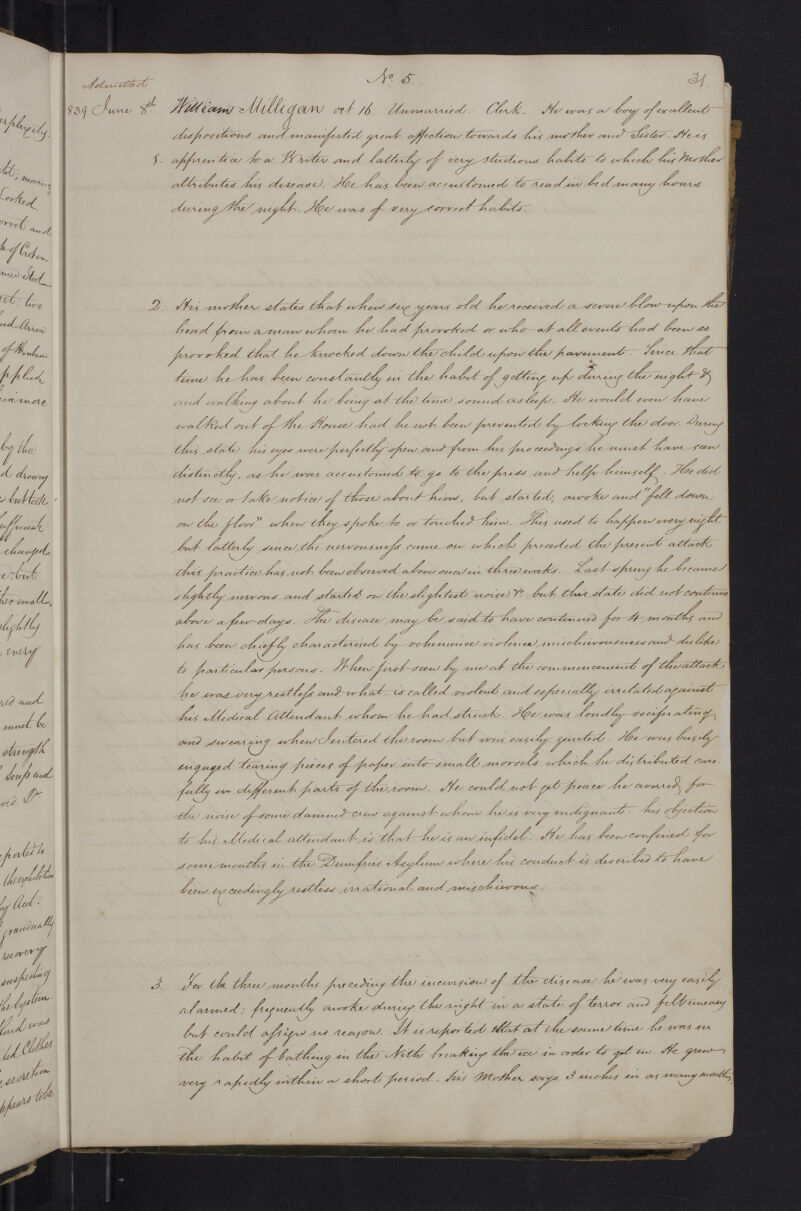 Admitted
No 5.
31.
839 June 8th William Milligan aet 16. Unmarried. Clerk. He was a boy of excellent
dispositions and manifested great affection towards his mother and Sister. He is
1. apprentice to a Writer and latterly of very studious habits to which his Mother
attributes his disease. He has been accustomed to read in bed many hours
during the night. He was of very correct habits.
2. His mother states that when six years old he received a severe blow upon the
head from a man whom he had provoked or who at all events had been so
provoked that he knocked down the child upon the pavement. Since that
time he has been constantly in the habit of getting up during the night &
and walking about he being at the time sound asleep. He would even have
walked out of the House had he not been prevented by locking the door. During
this state his eyes were perfectly open and from his proceedings he must have seen
distinctly, as he was accustomed to go to the press and help himself. He did
not see or take notice of those about him, but started, awoke and "fell down
on the floor" when they spoke to or touched him. This used to happen every night
but latterly since the nervousness came on which preceded the present attack
this practice has not been observed above once in three weeks. Last spring he became
slightly nervous and started on the slightest noise &c but this state did not continue
above a few days. The disease may be said to have continued for 4 months and
has been chiefly characterised by vehemence violence mischievousness and dislike
to particular persons. When first seen by me at the commencement of the attack
he was very restless and what is called violent and especially irritated against
his Medical Attendant whom he had struck. He was loudly vociferating
and swearing when I entered the room but was easily quieted. He was busily
engaged tearing pieces of paper into small morsels which he distributed care
fully in different parts of the room. He could not get peace he averred, for
the noise of some damned crew against whom he is very indignant: his objection
to his Medical attendant is that he is an infidel. He has been confined for
some months in the Dumfries Asylum where his conduct is described to have
been exceedingly restless irrational and mischievous.
3. For the three months preceding the incursion of the disease he was very easily
alarmed; frequently awoke during the night in a state of terror and felt uneasy
but could assign no reason. It is reported that at the same time he was in
the habit of bathing in the Nith breaking the ice in order to get in. He grew
very rapidly within a short period. his Mother says 3 inches in as many months
perplexity
Looked
and
of Croton
two
applied
more
by the
drowsy
buttock
sufficient
changed
but
small.
slightly
every
and
must be
strength
Soup and
Dr
gradually
recovery
suspecting
System
was
Clothes
secretion
appears to be